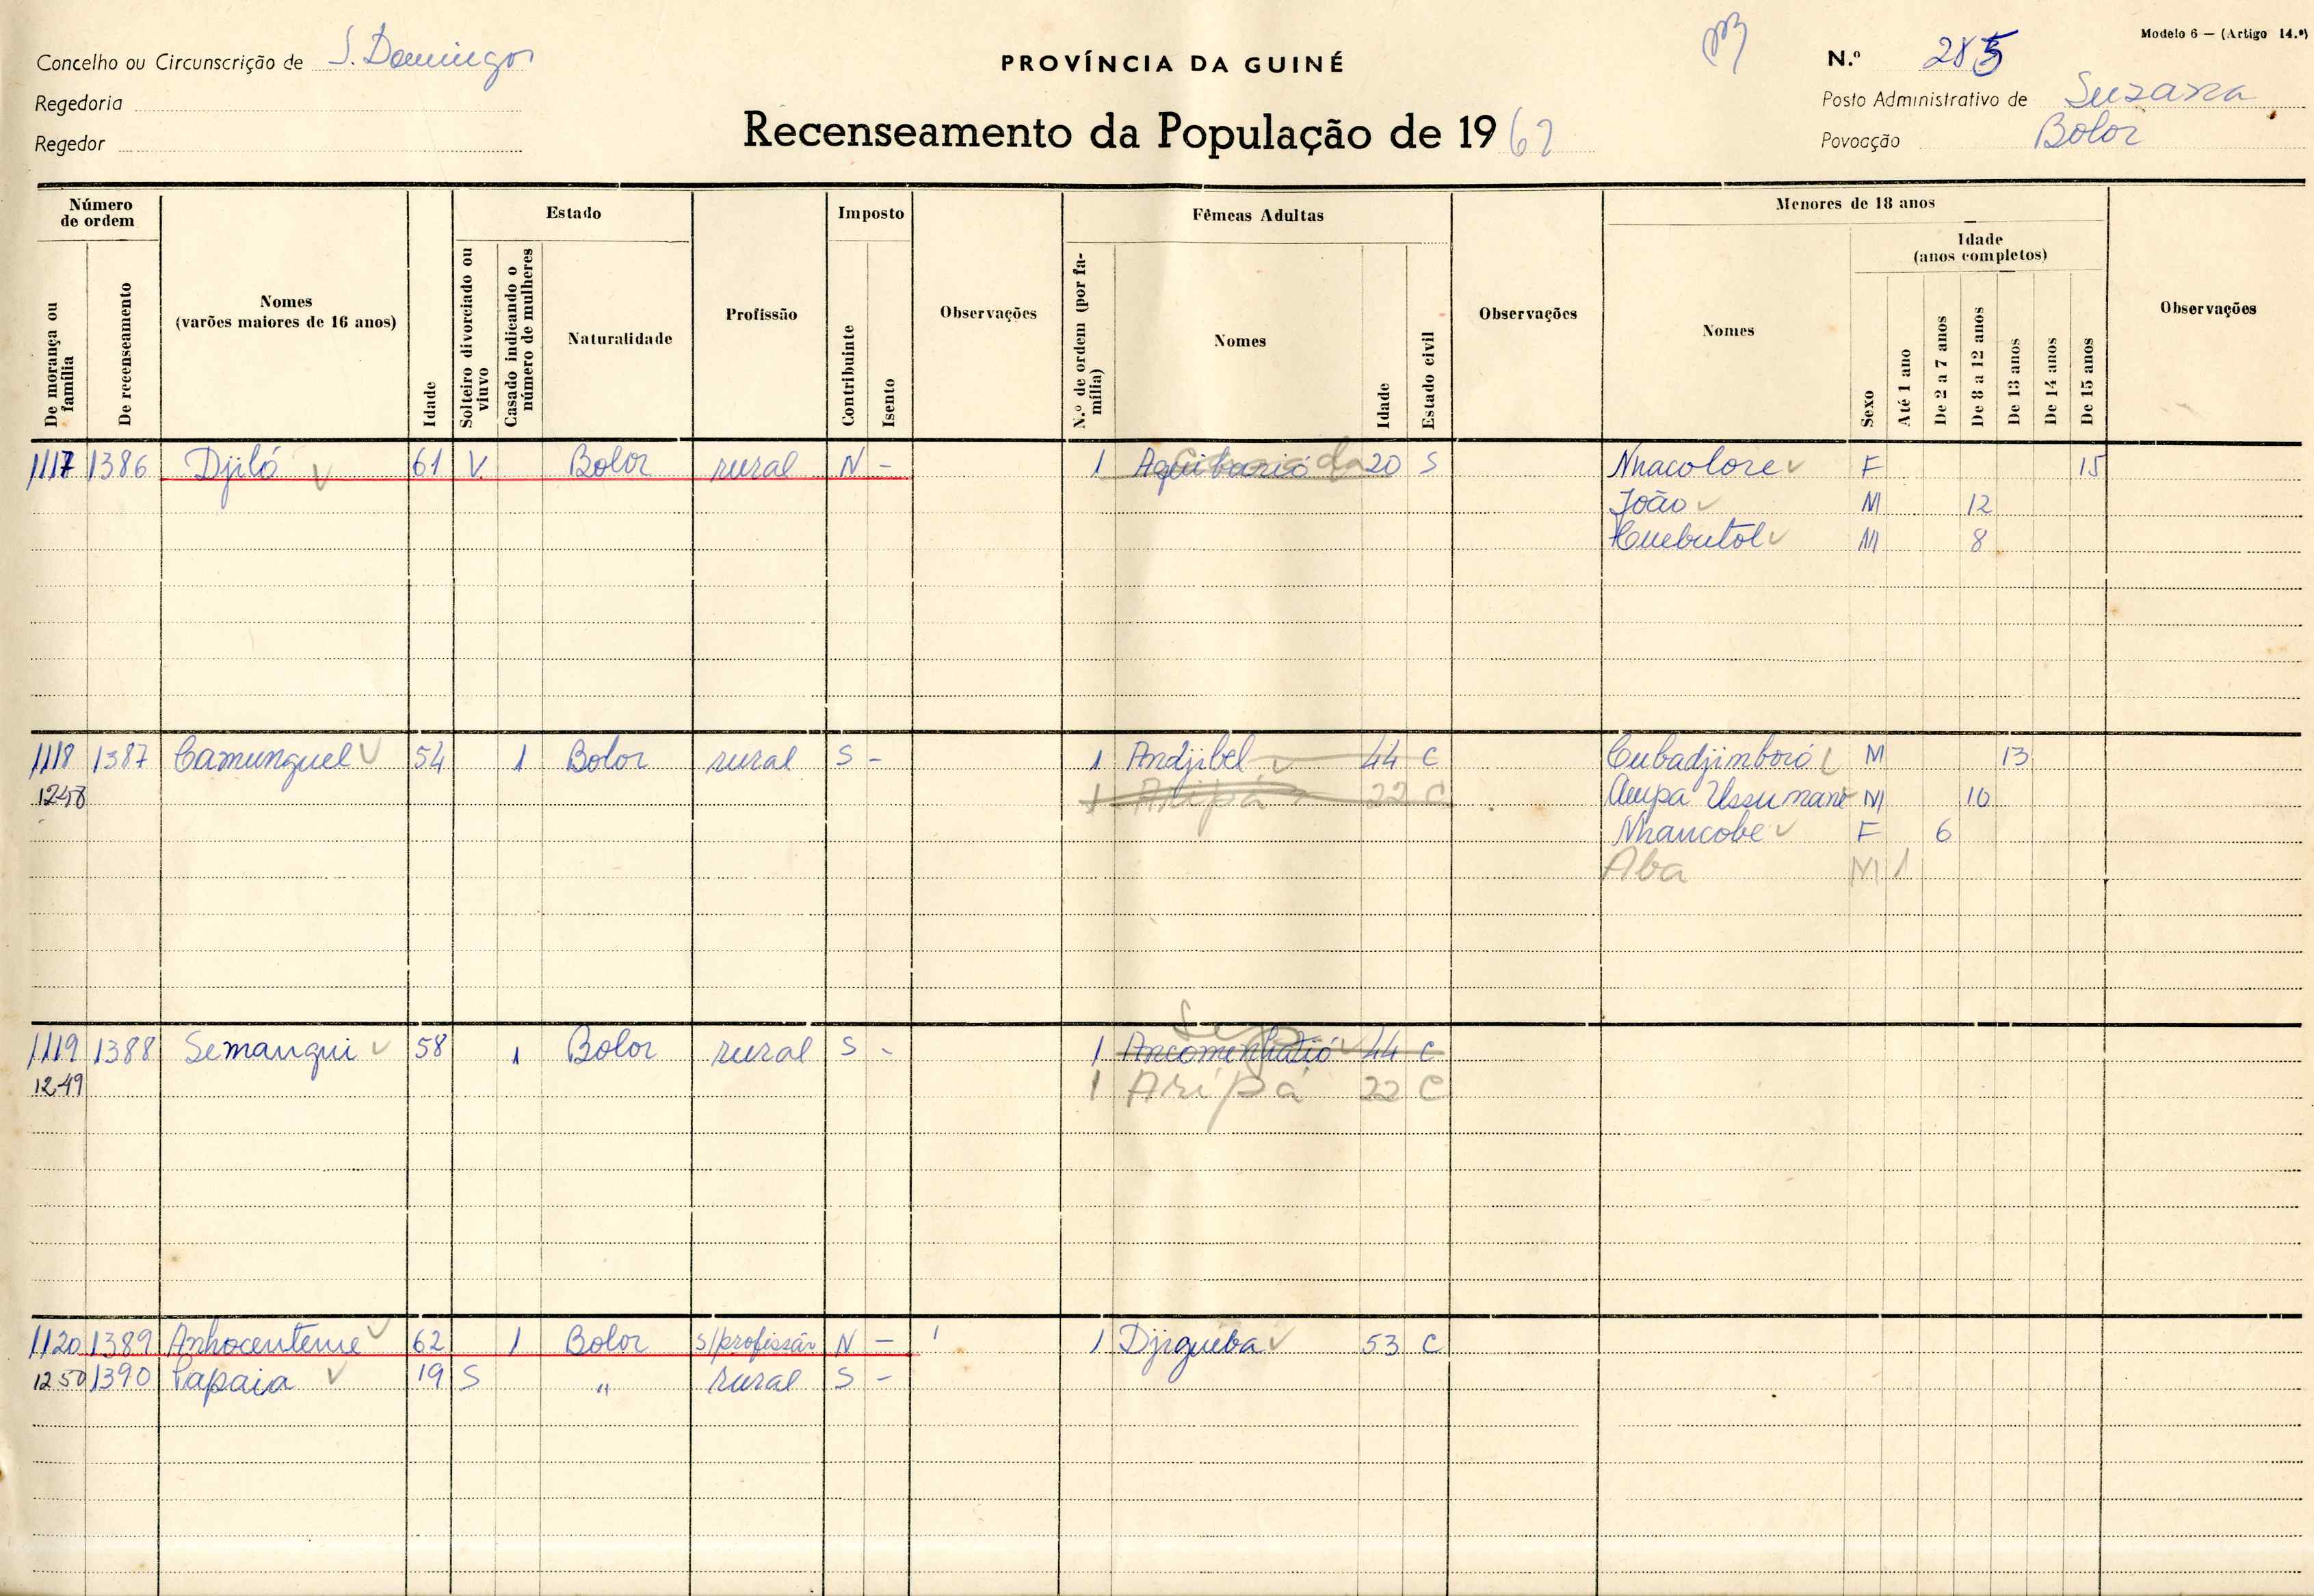 Modelo 6 — (Artigo 14.º)
Concelho ou Circunscrição de S. Domingos
PROVÍNCIA DA GUINÉ
N.º 285
Regedoria
Posto Administrativo de Suzana
Regedor
Recenseamento da População de 1962
Povoação Bolor
Número de ordem
Estado
Imposto
Fêmeas Adultas
Menores de 18 anos
Idade (anos completos)
De morança ou família
De recenseamento
Nomes (varões maiores de 16 anos)
Idade
Solteiro divorciado ou viuvo
Casado indicando o número de mulheres
Naturalidade
Profissão
Contribuinte
Isento
Observações
N.º de ordem (por família)
Nomes
Idade
Estado civil
Observações
Nomes
Sexo
Até 1 ano
De 2 a 7 anos
De 8 a 12 anos
De 13 anos
De 14 anos
De 15 anos
Observações
1117 1386 Djiló 61 V. Bolor rural N - 1 20 S Nhacolore F 15
João M 12
Cuebutol M 8
1118 1387 Camunguel 54 1 Bolor rural S - 1 Andjibel 44 C Cubadjimboró M 13
1248 1 Aripá 22 C Ampa Ussumane M 10
Nhancobe F 6
Aba M 1
1119 1388 Semangui 58 1 Bolor rural S - 1 44 C
1249 1 Aripá 22 C
1120 1389 Anhocenteme 62 1 Bolor s/profissão N - 1 Djigueba 53 C
1250 1390 Papaia 19 S " rural S -